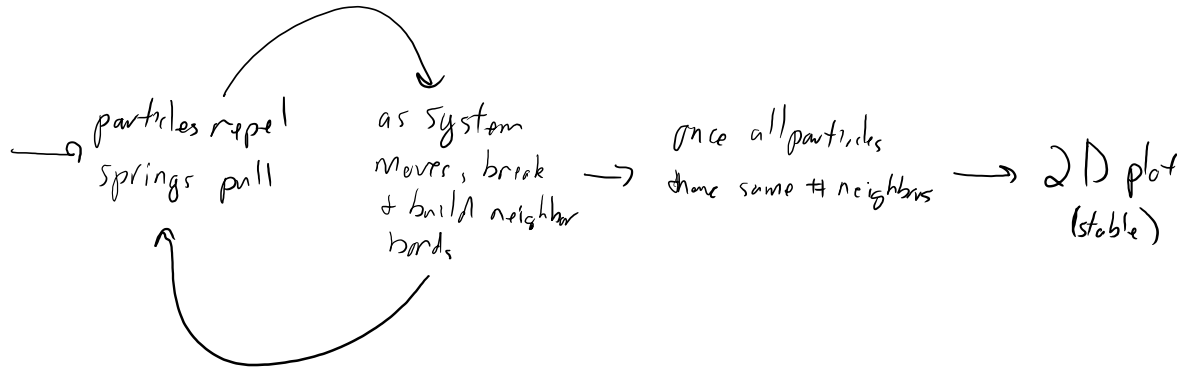 particles repel
springs pull
as system
moves, break
+ build neighbor
bonds
once all particles
have same # neighbors
2D plot
(stable)